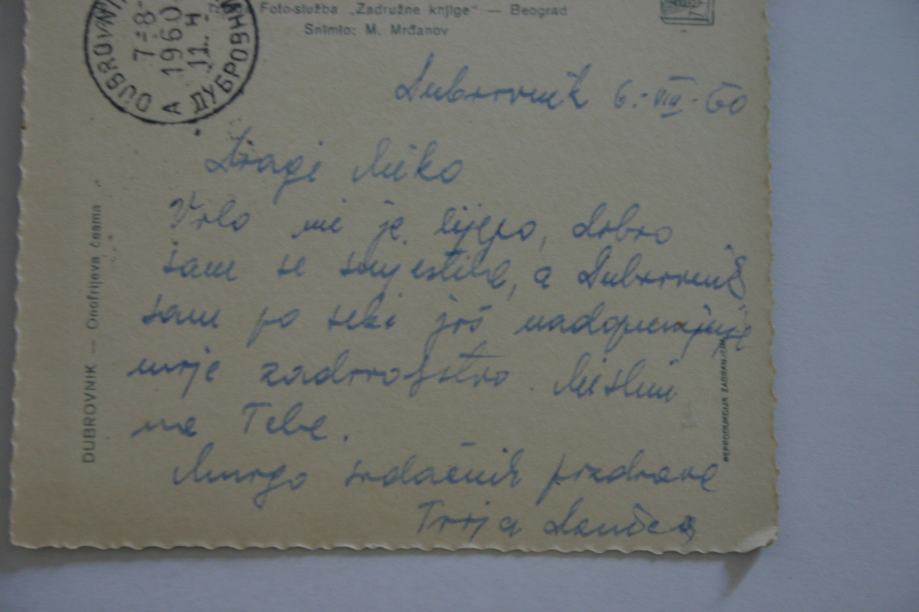 Foto-služba „Zadružne knjige" — Beograd
Snimio: M. Mrđanov
DUBROVNIK
7-8-
1960
11. Ч
А ДУБРОВНИ
Dubrovnik 6.-VIII-60
Dragi Miko
Vrlo mi je lijepo, dobro
sam se smjestila, a Dubrovnik
sam po sebi još nadopunjuje
moje zadovoljstvo. Mislim
na Tebe.
Mnogo srdačnih pozdrava
Tvoja
DUBROVNIK — Onofrijeva česma
REPRODUKCIJA ZABRANJENA